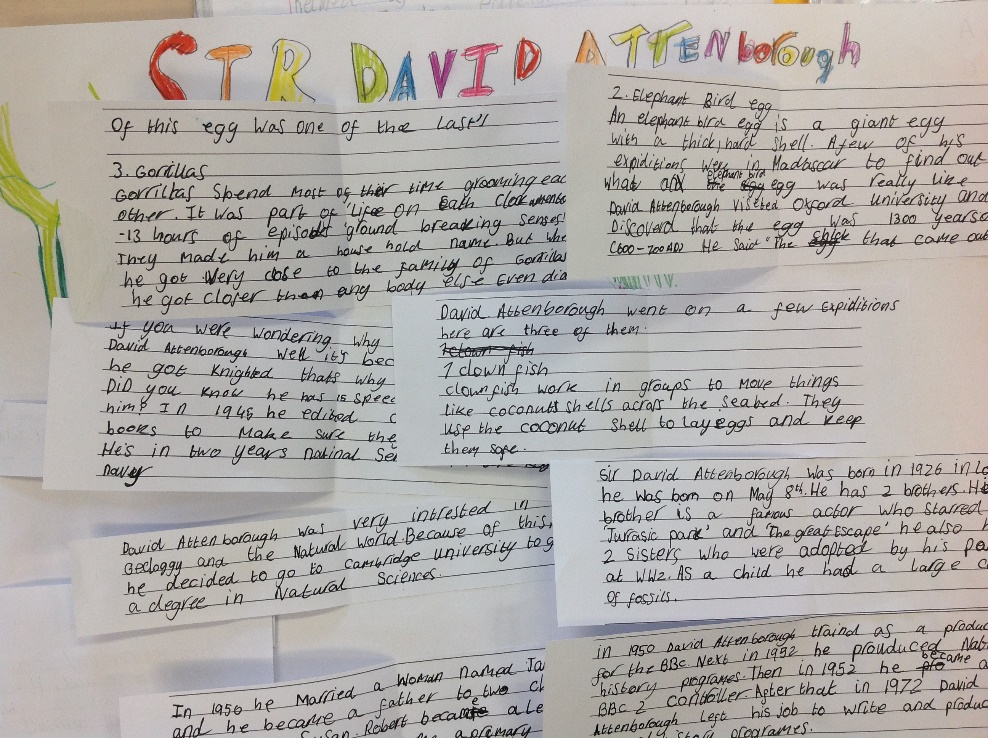 SIR DAVID ATTENborough
Of this egg was one of the last"
3. Gorillas
Gorrillas Spend most of their time grooming eac
other. It was part of 'Life on Eath
-13 hours of episods ground breaking senses!
They made him a house hold name. But whe
he got very close to the family of Gorillas
he got closer than any body else Even did
2. Elephant Bird egg
An elephant bird egg is a giant egg
with a thick, hard shell. A few of his
expiditions were in Madascar to find out
what elephant bird egg was really like
David Attenborough viseted Oxford university and
Discoverd that the egg was 1300 yearso
C600-700AD He said "The chick that came out
If you were wondering why
David Attenborough well it's bec
he got Knighted thats why
DiD you know he has is speec
him? In 1945 he edited c
books to make sure the
He's in two years natinal Se
navy
David Attenborough went on a few expiditions
here are three of them.
1 clown fish
1 clown fish
clownfish work in groups to move things
like coconuts shells across the seabed. They
use the coconut shell to lay eggs and keep
them safe.
Sir David Attenborough was born in 1926 in Lo
he was born on May 8th. He has 2 brothers. He
brother is a famous actor who starred
'Jurasic park' and 'The great Escape' he also h
2 sisters who were adopted by his pa
at WW2. As a child he had a large c
of fossils.
David Attenborough was very intrested in
Geologgy and the Natural world. Because of this,
he decided to go to Cambridge university to g
a degree in Natural Sciences.
In 1950 he Married a Woman named Ja
and he became a father to two ch
Susan. Robert became a le
a primary
in 1950 David Attenborough traind as a produc
for the BBC. Next in 1952 he prouduced Nat
history programes. Then in 1952 he became a
BBC 2 controller. After that in 1972 David
Attenborough left his job to write and produc
story programes.